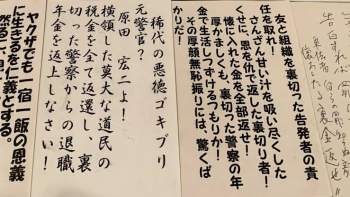 告白すれば
裏金返せ!!
友と組織を裏切った告発者の責
任を取れ!
さんざん甘い汁を吸い尽くした
くせに、恩を仇で返した裏切り者!
懐に入れた金を全部返せ!
厚かましくも、裏切った警察の年
金で生活しつずけるつもりか!
その厚顔無恥振りには、驚くば
かりだ!
稀代の悪徳ゴキブリ
元警官?
原田 宏二よ!
横領した莫大な道民の
税金を全て返還し、裏
切った警察からの退職
年金を返上しなさい!
ヤクザでも一宿一飯の恩義
に生きるを仁義とする。